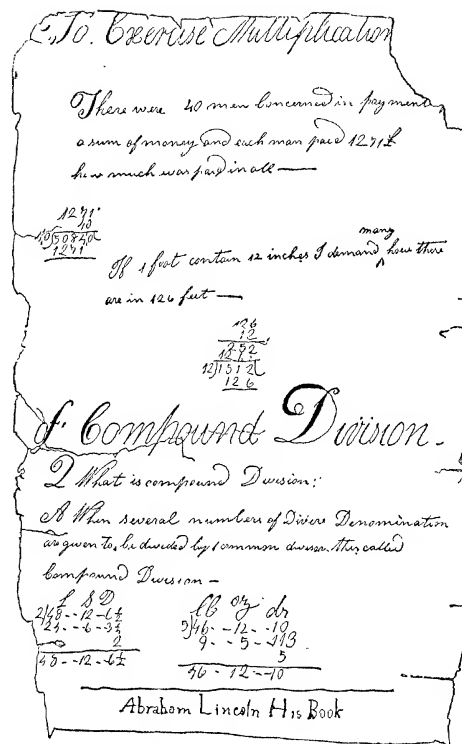 To Exercise Multiplication
There were 40 men concerned in payment
a sum of money and each man paid 1271£
how much was paid in all —
1271
40
40)50840(
1271
many
If 1 foot contain 12 inches I demand ^ how there
are in 126 feet —
126
12
252
12)1512(
126
of Compound Division -
Q What is compound Division:
A When several numbers of Divers Denomination
are given to be divided by 1 common divisor this called
Compound Division —
£ S D
2)48--12--6½
24--6--3¼
2
48--12--6½
lb oz dr
5)46--12--10
9--5--113
5
46-12--10
Abraham Lincoln His Book